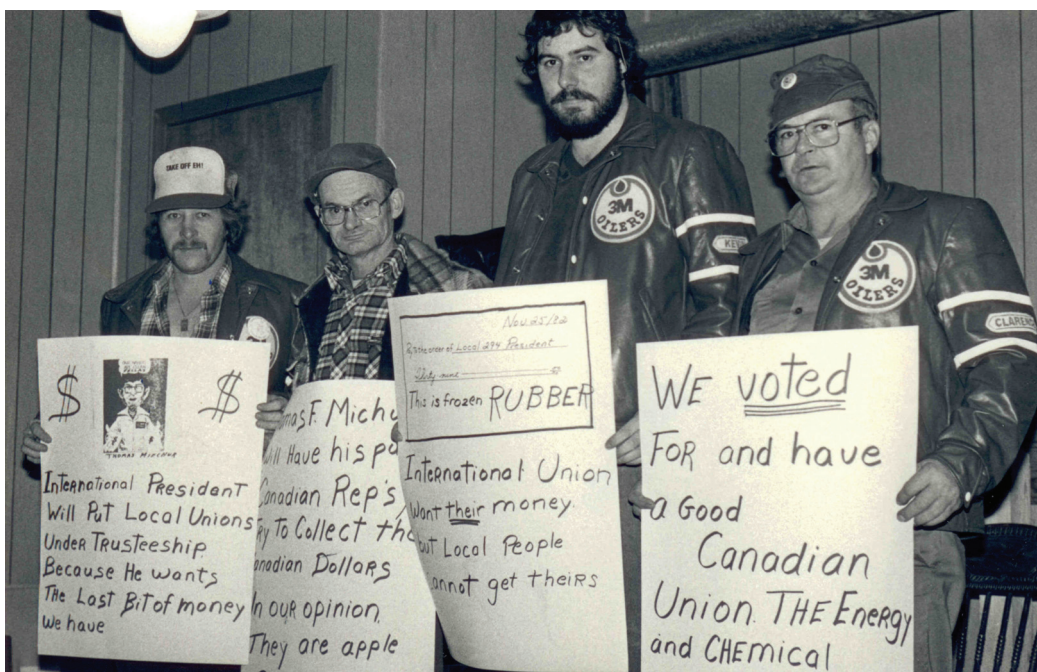 TAKE OFF EH!
3M
OILERS
KEVI
3M
OILERS
CLARENC
$ $
THOMAS MICHUR
International President
Will Put Local Unions
Under Trusteeship.
Because He wants
The Last Bit of money
We have
mas F. Michu
ill Have his pa
Canadian Rep's,
ry To Collect the
anadian Dollars
In our opinion,
They are apple
Nov 25/82
the order of Local 294 President
Sixty-nine
This is frozen RUBBER
International Union
Want their money.
but Local People
annot get theirs
WE voted
FOR and have
a Good
Canadian
Union. THE Energy
and CHEMICAL